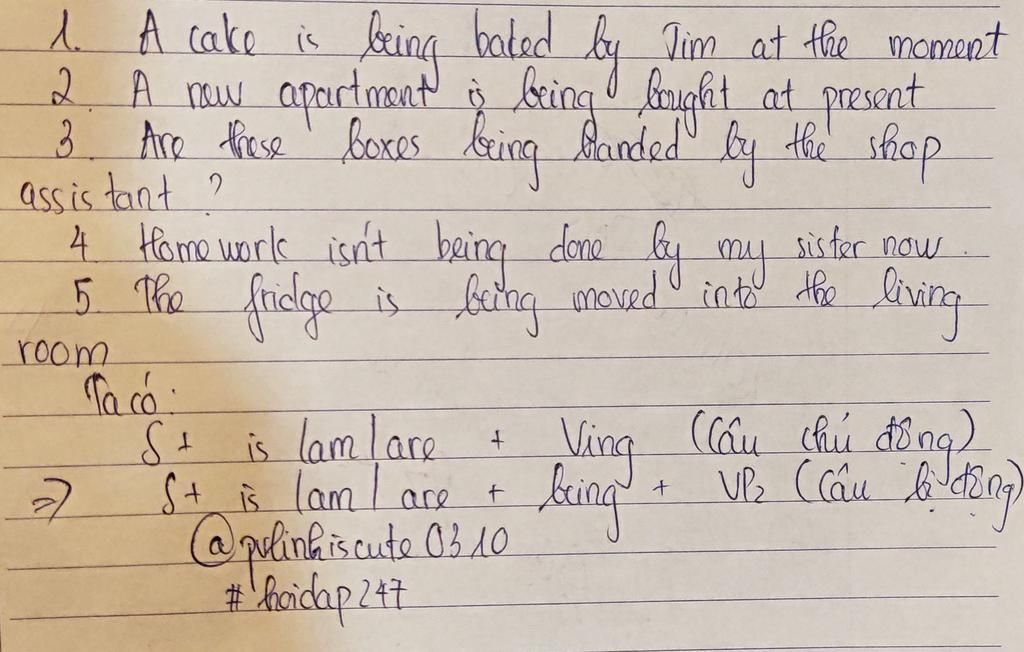 1. A cake is being baked by Jim at the moment
2. A new apartment is being bought at present
3. Are these boxes being handed by the shop
assistant ?
4 Homework isn't being done by my sister now.
5. The fridge is being moved into the living
room
Ta có:
S + is |am| are + Ving (Câu chủ động)
=> S + is |am| are + being + VP₂ (Câu bị động)
@pvlinhiscute0310
#hoidap247